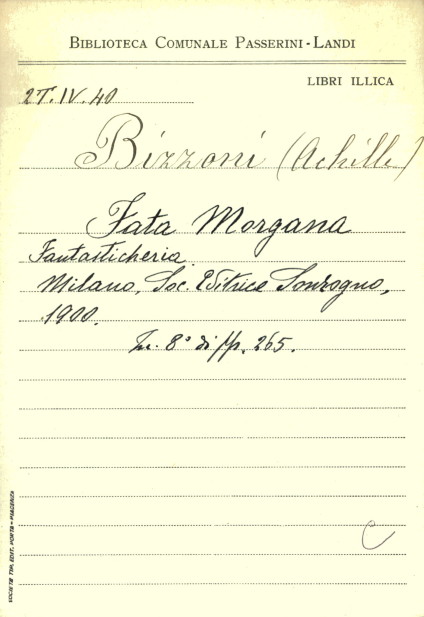 BIBLIOTECA COMUNALE PASSERINI-LANDI
LIBRI ILLICA
2T.IV.40
Bizzoni (Achille)
Fata Morgana
Fantasticheria.
Milano, Soc. Editrice Sonzogno,
1900.
In. 8° di pp. 265.
C
SOCIETÀ TIP. EDIT. PORTA - PIACENZA